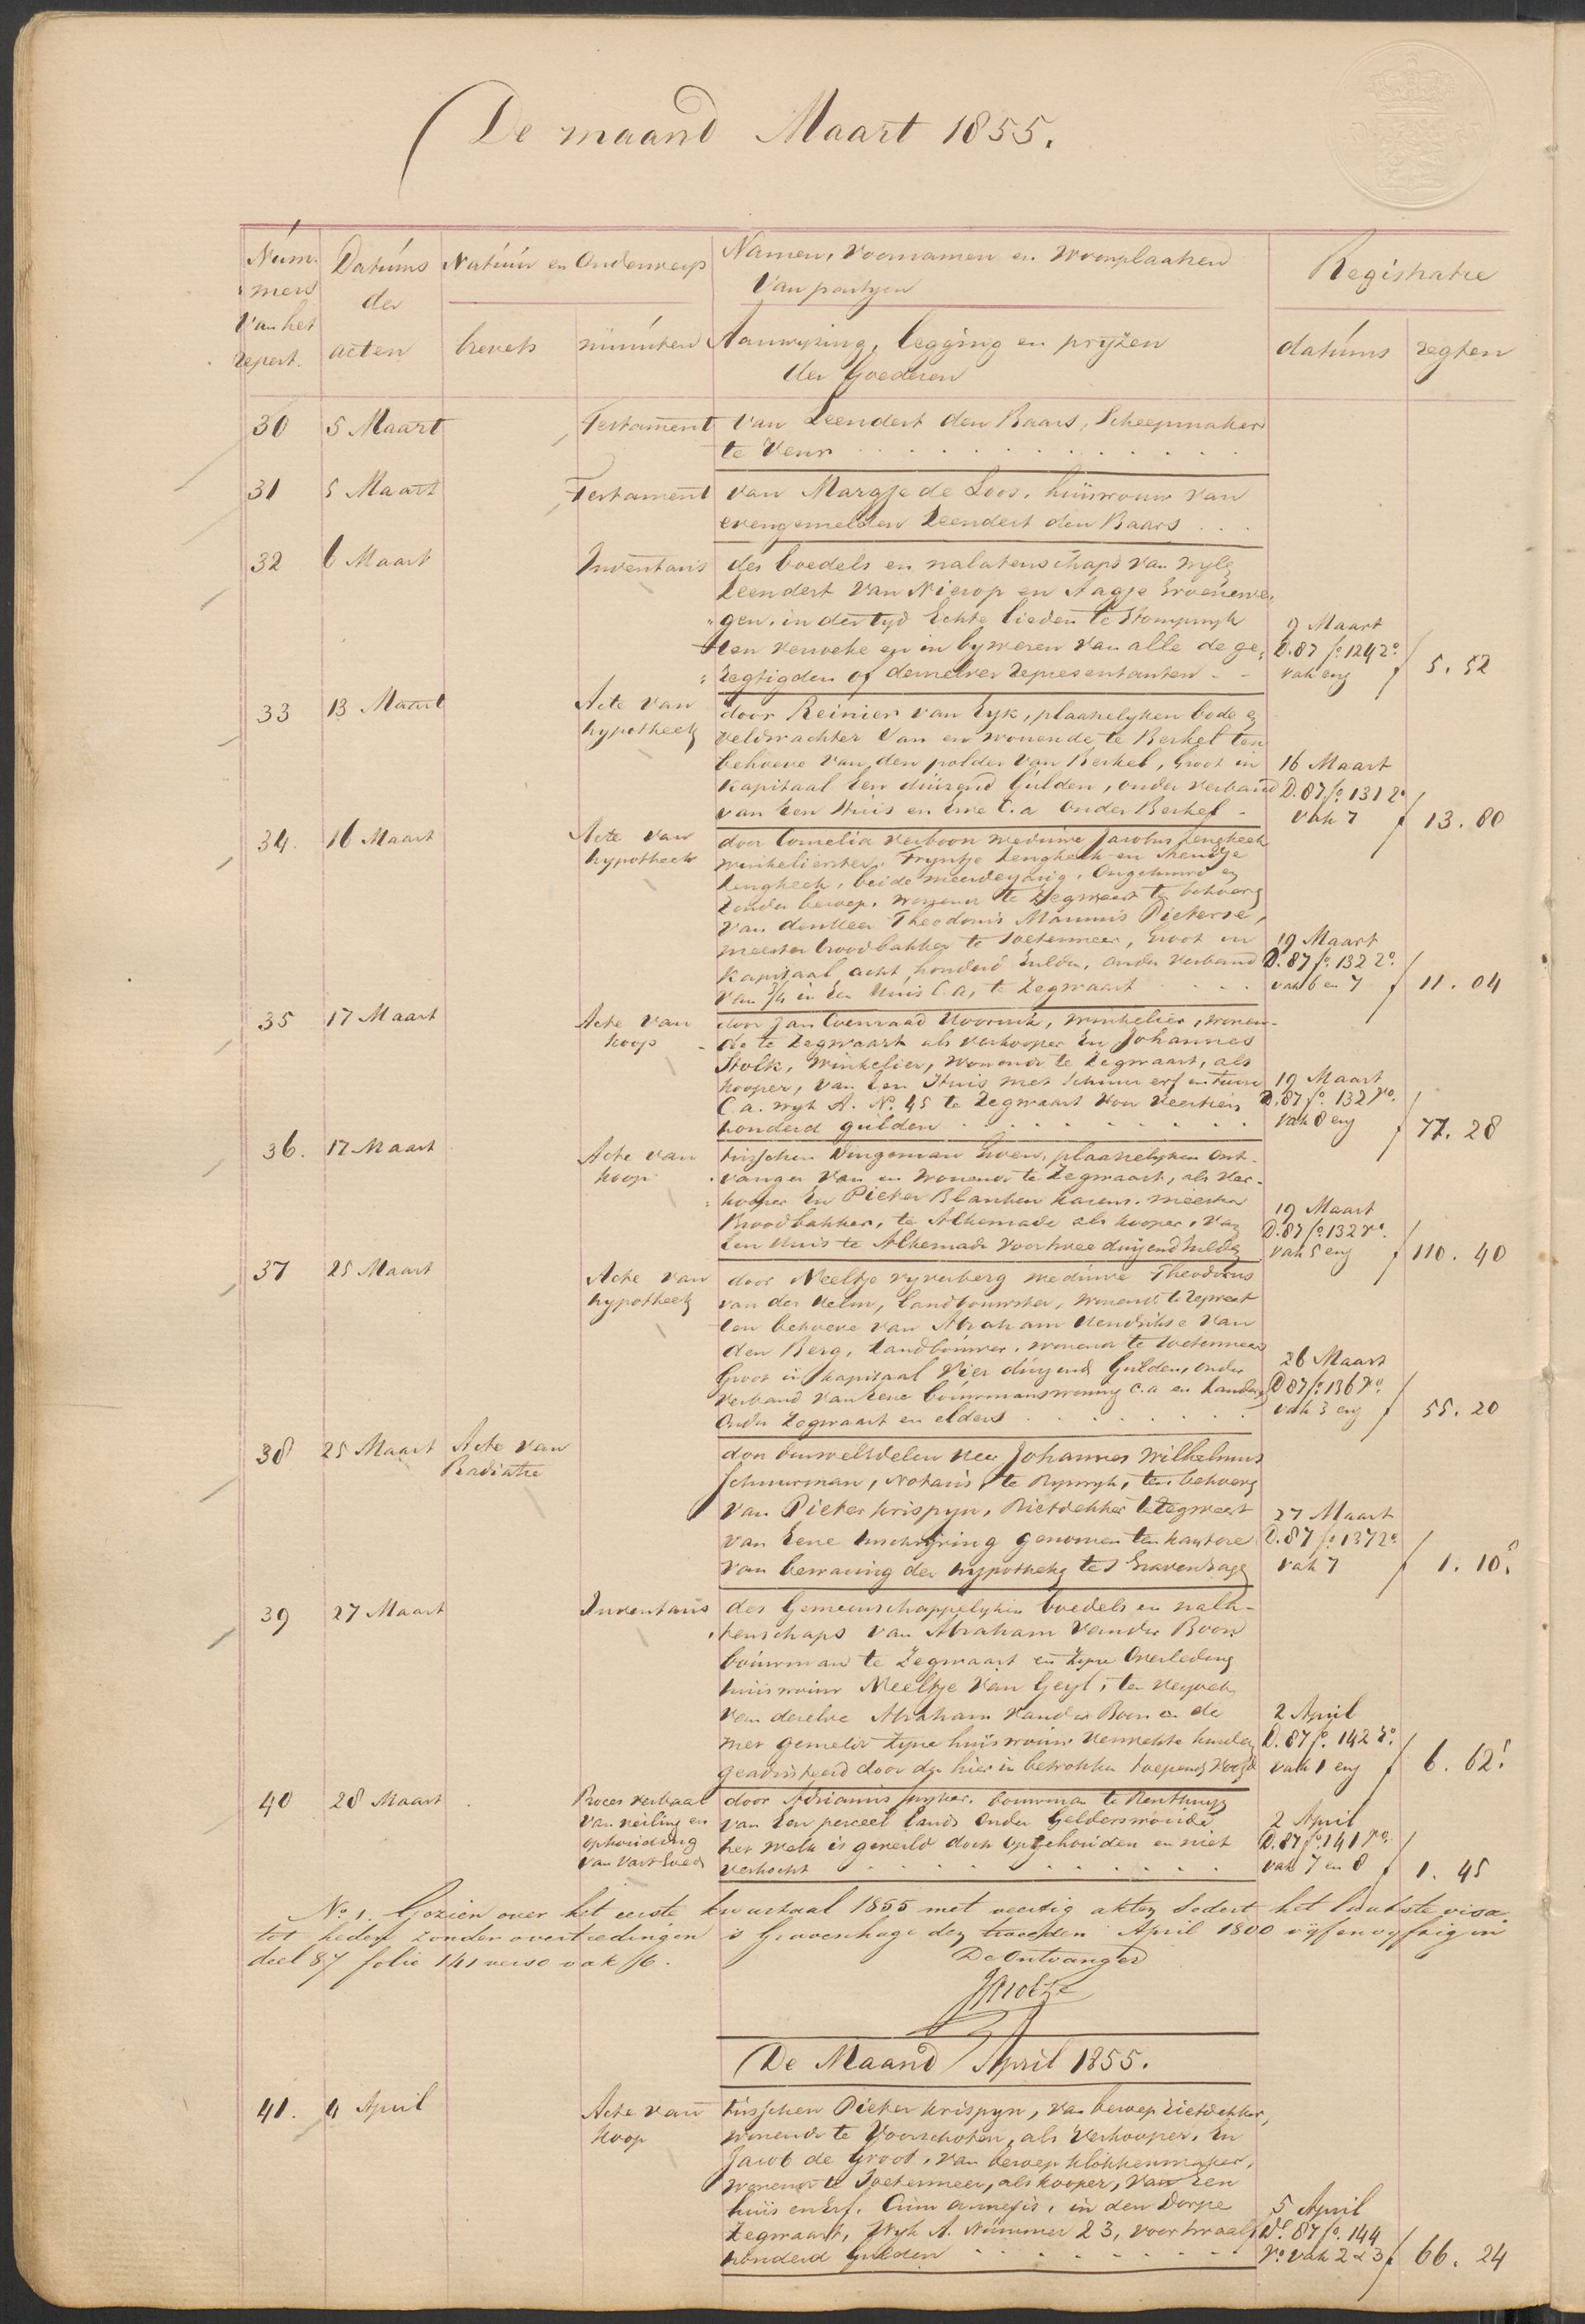 De maand Maart 1855.
Num-
mers
van het
repert.
Datums
der
acten
Natuur en Onderwerp
brevets
minuten
Namen, Voornamen en Woonplaatsen
van partyen
Aanwyzing, legging en pryzen
der Goederen
Registratie
datums
regten
30 5 Maart Testament van Leendert den Baars, Scheepmaker
te Veur
31 5 Maart Testament van Maragje de Loos, huisvrouw van
evengemelden Leendert den Baars
32 6 Maart Inventaris des boedels en nalatenschaps van wyle
Leendert van Nierop en Aagje Groenewe-
gen, in der tyd Echte lieden te Stompwyk
ten verzoeke en in bywezen van alle de ge- 9 Maart
D. 87 fo. 124 ro.
regtigden of derzelver representanten vak eny f 5.52
33 13 Maart Acte van
hypotheek
door Reinier van Eyk, plaatselyken bode en
veldwachter van en wonende te Berkel ten
behoeve van den polder van Berkel, Groot in 16 Maart
Kapitaal Een duizend Gulden, onder verband D. 87 fo. 131 ro
van Een Huis en Erve C.a onder Berkel vak 7 f 13.80
34. 16 Maart Acte van
hypotheek
door Cornelia Verboon weduwe Jacobus Lengkeek
winkelierster, Tryntje Lengkeek en
Lengkeek, beide meerderjarig, Ongehuwd en
Zonder beroep, wonende te Zegwaart te behoeve
van den Heer Theodorus Marinus Pieterse,
meester broodbakker te Soetermeer, Groot in 19 Maart
Kapitaal acht honderd Gulden, onder verband D. 87 fo. 132 ro.
van 3/4 in Een Huis C.a, te Zegwaart vak 6 en 7 f 11.04
35 17 Maart Acte van
koop
door Jan Coenraad , winkelier, wonen-
de te Zegwaart als verkooper En Johannes
Stolk, Winkelier, wonende te Zegwaart, als
kooper, van Een Huis met Schuur erf en tuin 19 Maart
C.a. wyk A. No. 45 te Zegwaart voor veertien D. 87 fo. 132 vo.
honderd gulden vak 8 eny f 77.28
36. 17 Maart Acte van
koop
tusschen Dingeman , plaatselyken Ont-
vanger van en wonende te Zegwaart, als ver-
kooper En Pieter Blanken , meester 19 Maart
Broodbakker, te Alkemade als kooper, van D. 87 fo. 132 vo.
Een Huis te Alkemade voor twee duizend Gulden vak 5 eny f 110.40
37 25 Maart Acte van
hypotheek
door Neeltje Vyverberg weduwe Theodorus
van der Helm, landbouwster, wonende te Zegwaart
ten behoeve van Abraham Hendrikse van
den Berg, Landbouwer, wonende te Soetermeer
Groot in kapitaal Vier duizend Gulden, onder 26 Maart
verband van Eene bouwmanswoning c.a en landen D 87 fo. 136 vo.
onder Zegwaart en elders vak 3 eny f 55.20
38 25 Maart Acte van
Radiatie
door den weledelen Heer Johannes Wilhelmus
Schuurman, Notaris, te Ryswyk, ten behoeve
van Pieter Krispyn, Rietdekker te Zegwaart 27 Maart
van Eene inschryving genomen ten kantore D. 87 fo. 137 ro.
van bewaring der hypotheken te s Gravenhage vak 7 f 1.10 5
39 27 Maart Inventaris des Gemeenschappelyken boedels en nala-
tenschaps van Abraham van der Boon
bouwman te Zegwaart en Zyne Overledene
huisvrouw Neeltje van Geyl, ten verzoeke
van denzelve Abraham van der Boon en de 2 April
met gemelde Zyne huisvrouw verwekte kinderen D. 87 fo. 142 ro.
geadsisteerd door den hier in betrokken toeziend voogd vak 1 eny f 6.62 5
40 28 Maart Proces verbaal
van veiling en
ophouding
van vast Goed
door Adrianus , bouwman te Benthuizen
van Een perceel lands onder Gelderswoude 2 April
het welk is geveild doch Opgehouden en niet D. 87 fo. 141 vo.
verkocht vak 7 en 8 f 1.45
No. 1. Gezien over het eerste kwartaal 1855 met veertig akten sedert het laatste visa
tot heden zonder overtredingen 's Gravenhage den tweeden April 1800 vyf en vyftig in
deel 87 folio 141 verso vak 6.
De Ontvanger
De Maand April 1855.
41. 4 April Acte van
Koop
tusschen Pieter Krispyn, van beroep rietdekker,
wonende te Voorschoten, als Verkooper, En
Jacob de Groot, van beroep klokkenmaker,
wonende te Soetermeer, als kooper, van Een
huis en Erf, Cum annexis, in den Dorpe 5 April
Zegwaart, Wyk A. Nummer 23, voor twaalf Dl. 87 fo. 144
honderd gulden vo. vak 2 & 3 f 66.24